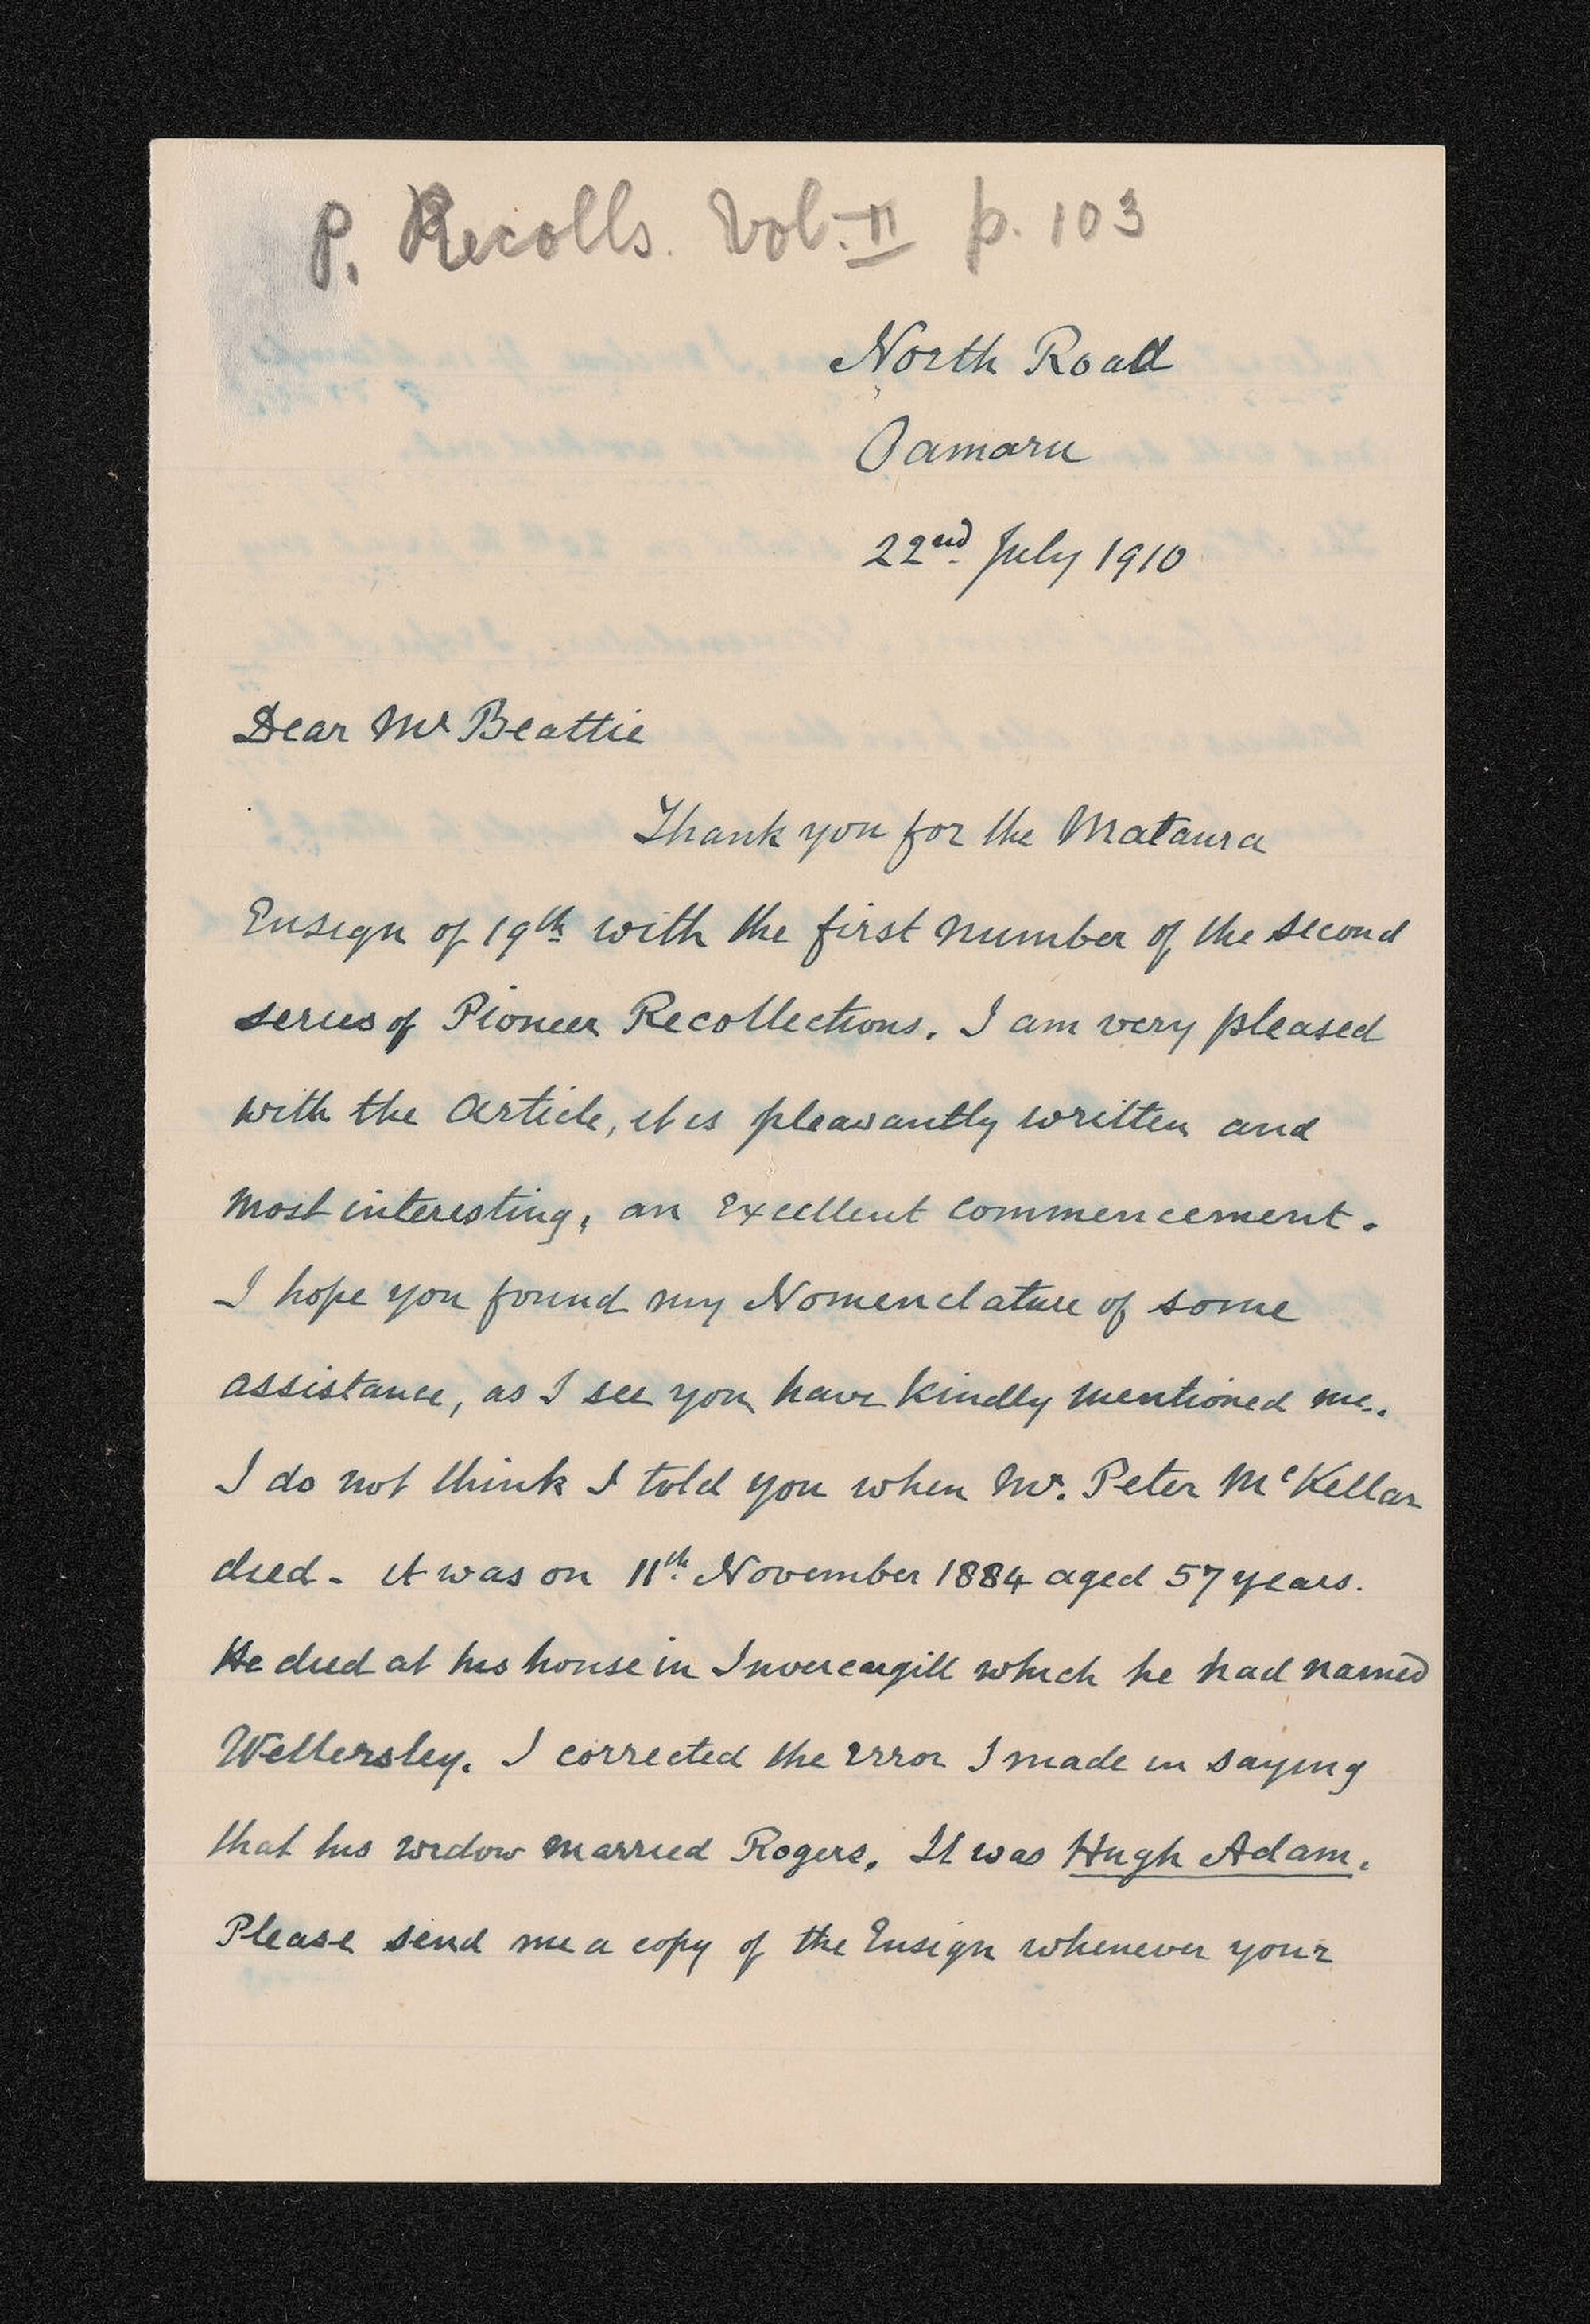 P. Recolls. Vol. II p. 103
North Road
Oamaru
22nd. July 1910
Dear Mr Beattie
Thank you for the Mataura
Ensign of 19th with the first number of the second
series of Pioneer Recollections. I am very pleased
with the Article, it is pleasantly written and
most interesting, an Excellent Commencement.
I hope you found my Nomenclature of some
assistance, as I see you have kindly mentioned me.
I do not think I told you when Mr. Peter McKellar
died - it was on 11th. November 1884 aged 57 years.
He died at his house in Invercargill which he had named
Wellersley. I corrected the error I made in saying
that his widow married Rogers. It was Hugh Adam.
Please send me a copy of the Ensign whenever your